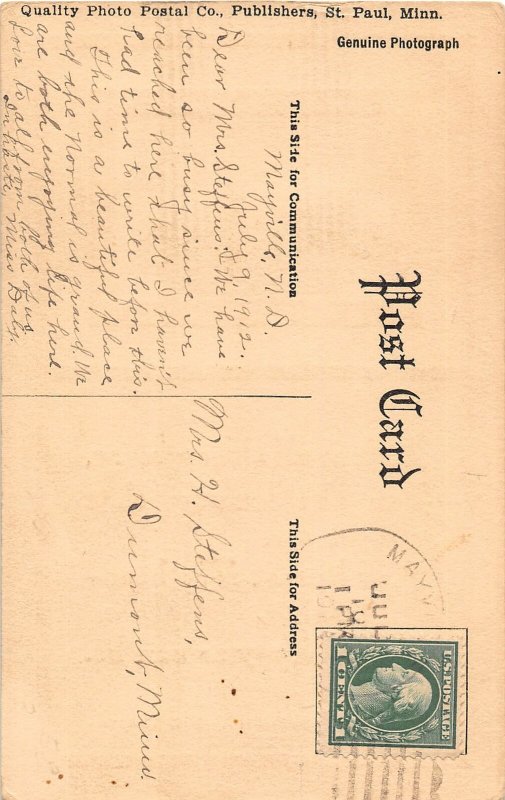 Quality Photo Postal Co., Publishers, St. Paul, Minn.
Genuine Photograph
Post Card
This Side for Communication
This Side for Address
Mayville, N. D.
July 9, 1912.
Dear Mrs. Steffens:- We have
been so busy since we
reached here that I haven't
had time to write before this.
This is a beautiful place
and the Normal is grand. We
are both enjoying life here.
Love to all from both of us
In haste, Miss Daly.
Mrs. H. Steffens,
Dumont, Minn.
MAYV
JUL
U.S. POSTAGE
1 CENT 1